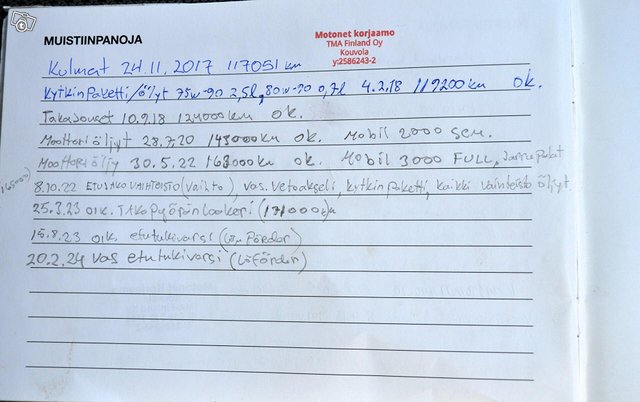 MUISTIINPANOJA
Motonet korjaamo
TMA Finland Oy
Kouvola
y:2586243-2
Kulmat 24.11.2017 117051 km
Kytkinpaketti/öljyt 75w-90 2,5l, 80w-90 0,7l 4.2.18 119200km ok.
Takajouset 10.9.18 124000km ok.
Moottoriöljyt 28.7.20 143000km ok. Mobil 2000 sem.
Moottoriöljy 30.5.22 163000km ok. Mobil 3000 FULL, Jarrupalat
165000
8.10.22 ETUJAKOVAIHTEISTO (vaihto), vas. vetoakseli, kytkinpaketti, kaikki vaihteisto öljyt
25.3.23 oik. Takapyöränlaakeri (171000km)
15.8.23 oik. etutukivarsi
20.2.24 vas etutukivarsi